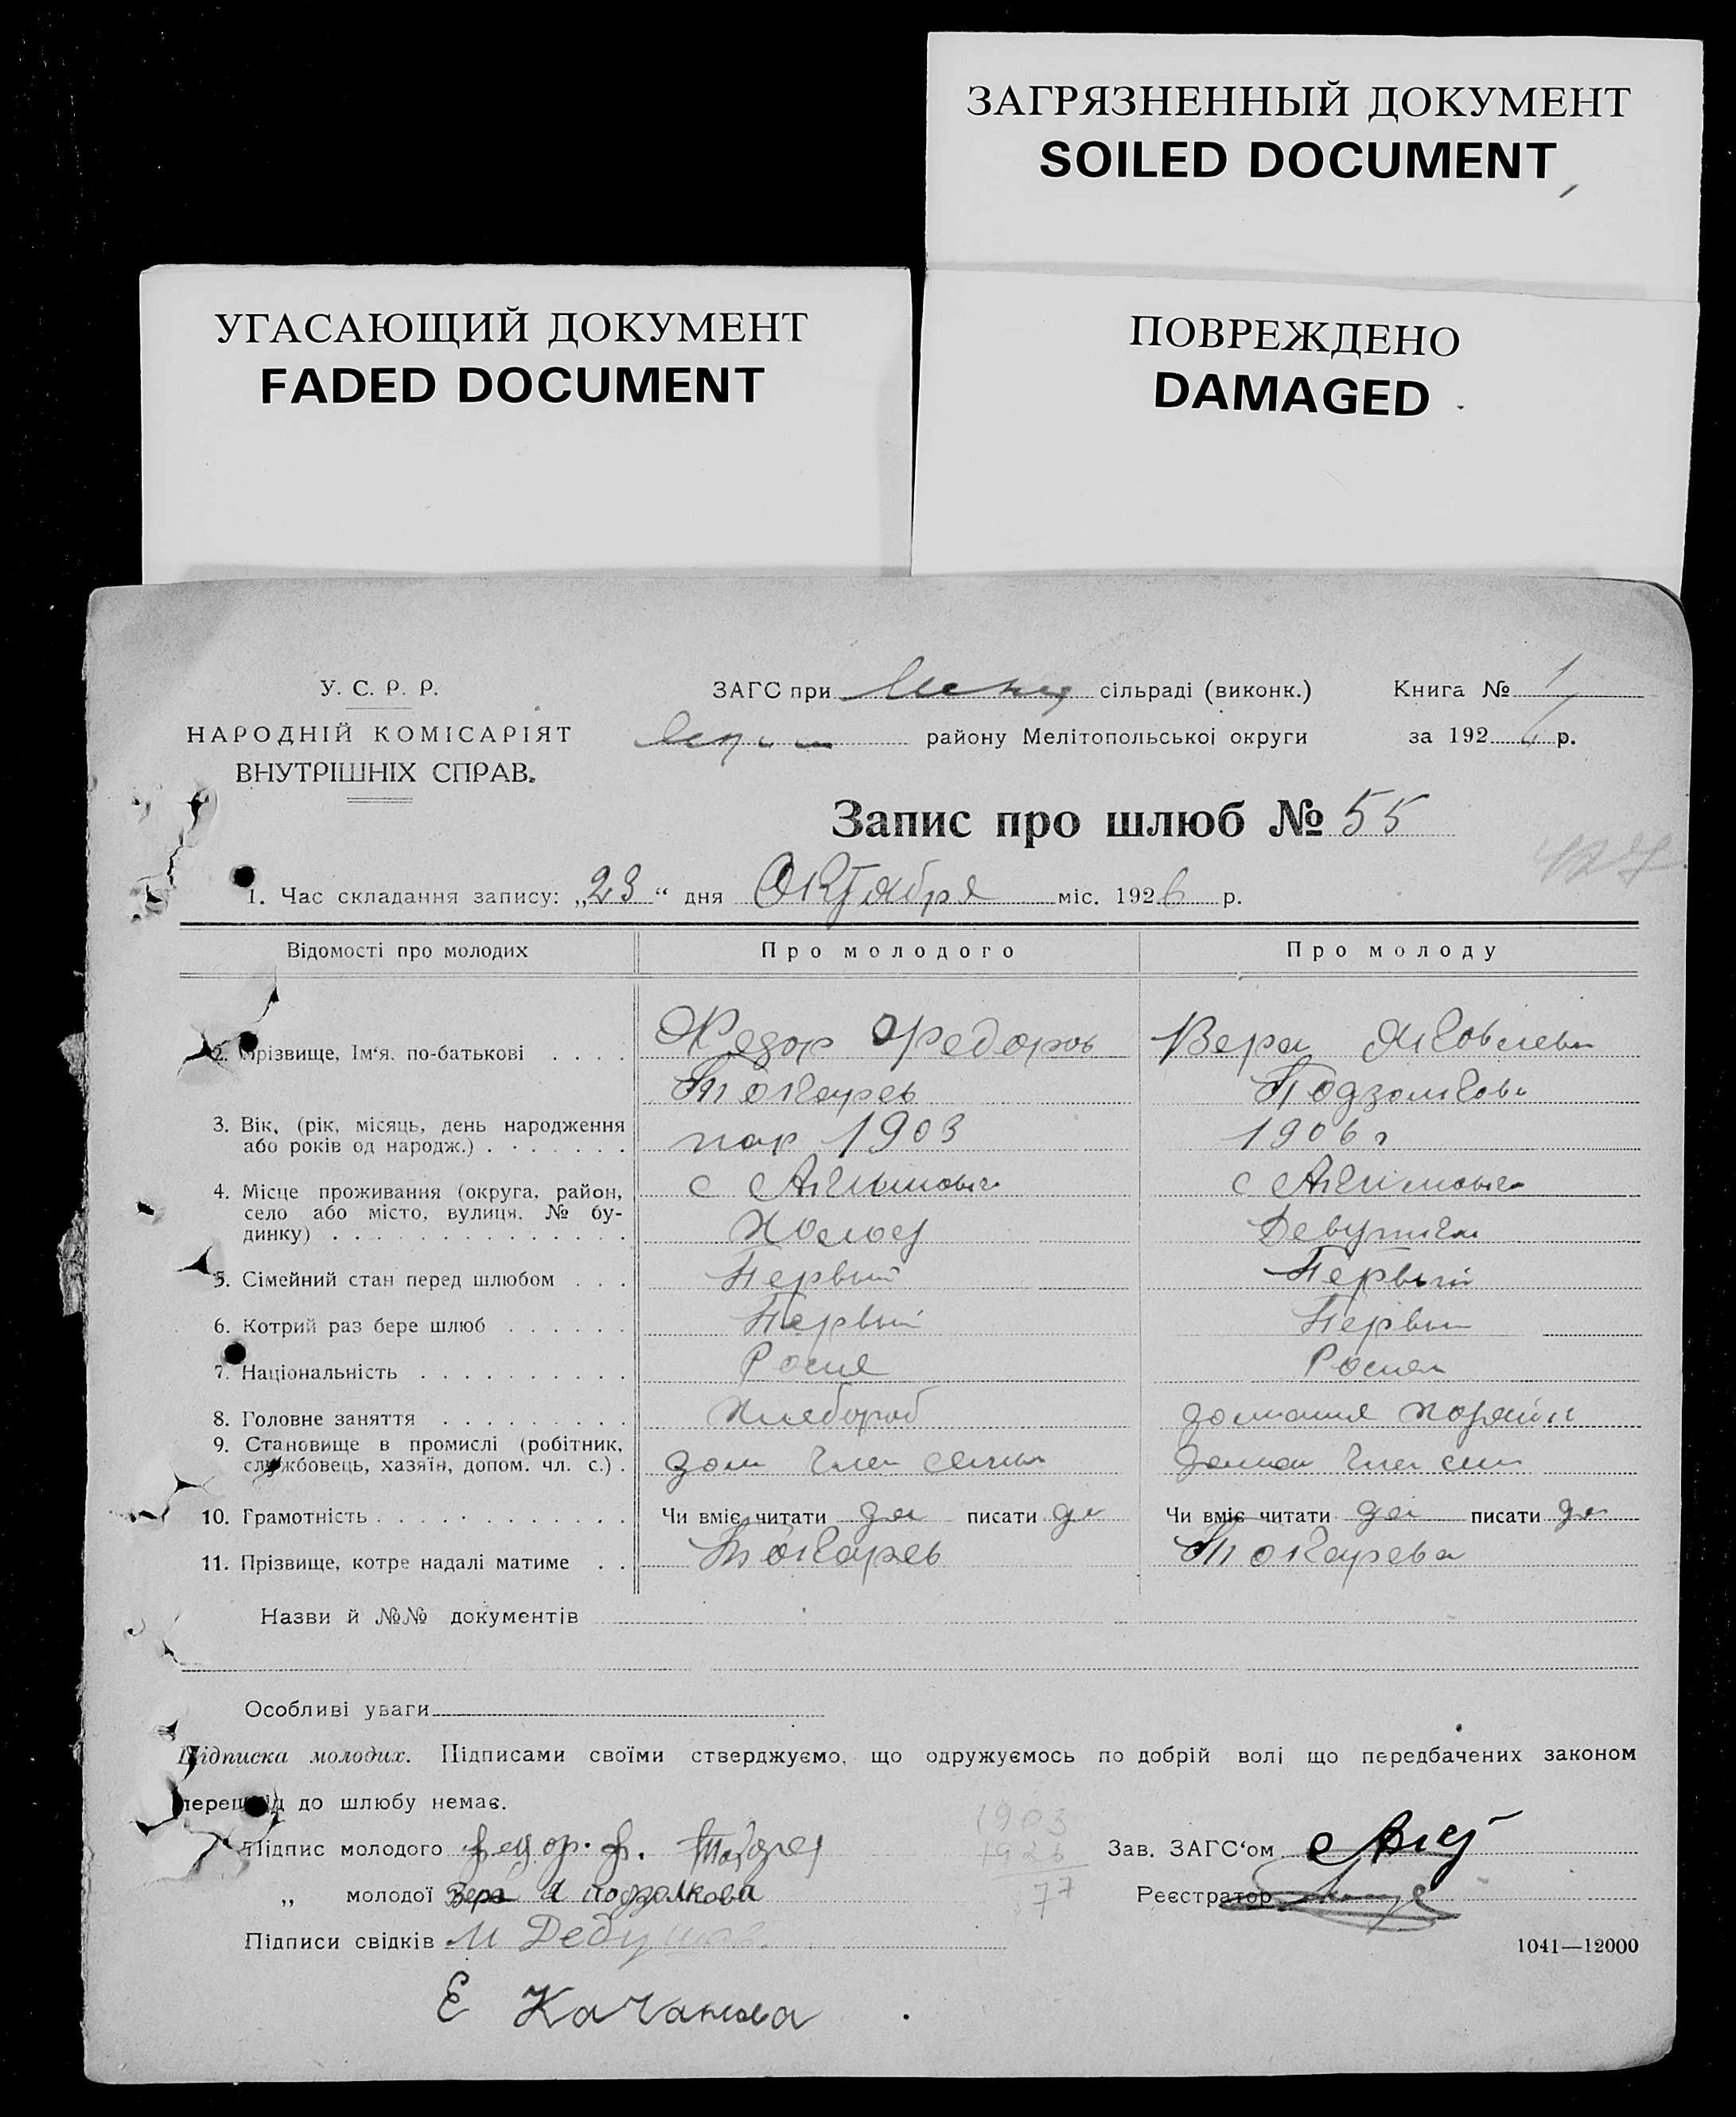 ЗАГРЯЗНЕННЫЙ ДОКУМЕНТ
SOILED DOCUMENT
УГАСАЮЩИЙ ДОКУМЕНТ
FADED DOCUMENT
ПОВРЕЖДЕНО
DAMAGED
У. С. Р. Р.
НАРОДНІЙ КОМІСАРІЯТ
ВНУТРІШНІХ СПРАВ.
ЗАГС при сільраді (виконк.)
Книга № 1
району Мелітопольської округи
за 192 р.
Запис про шлюб № 55
1. Час складання запису: „23“ дня Октября міс. 1926 р.
Відомості про молодих Про молодого Про молоду
2. Прізвище, Ім‘я, по-батькові . . . . Федор Федоров Вера Яковлевн
Токарев Подзолкова
3. Вік, (рік, місяць, день народження
або років од народж.) . . . . . . . 1903 1906 г
4. Місце проживання (округа, район,
село або місто, вулиця. № бу-
динку) . . . . . . . . . . . . . с Акимовка с Акимовка
Холост Девушка
5. Сімейний стан перед шлюбом . . . Первый Первый
6. Котрий раз бере шлюб . . . . . . Первый Первый
7. Національність . . . . . . . . . . Росия Росия
8. Головне заняття . . . . . . . . . Хлебороб домашня
9. Становище в промислі (робітник,
службовець, хазяїн, допом. чл. с.) . дом член семьи член
10. Грамотність . . . . . . . . . . . . Чи вміє читати да писати да Чи вміє читати да писати да
11. Прізвище, котре надалі матиме . . Токарев Токарева
Назви й №№ документів
Особливі уваги
Підписка молодих. Підписами своїми стверджуємо, що одружуємось по добрій волі що передбачених законом
перешкод до шлюбу немає.
Підпис молодого Федор. Ф. Токарев
Зав. ЗАГС‘ом
„ молодої Вера Я Подзолкова
Реєстратор
Підписи свідків М
1903
1926
77
1041—12000
Е Качанова